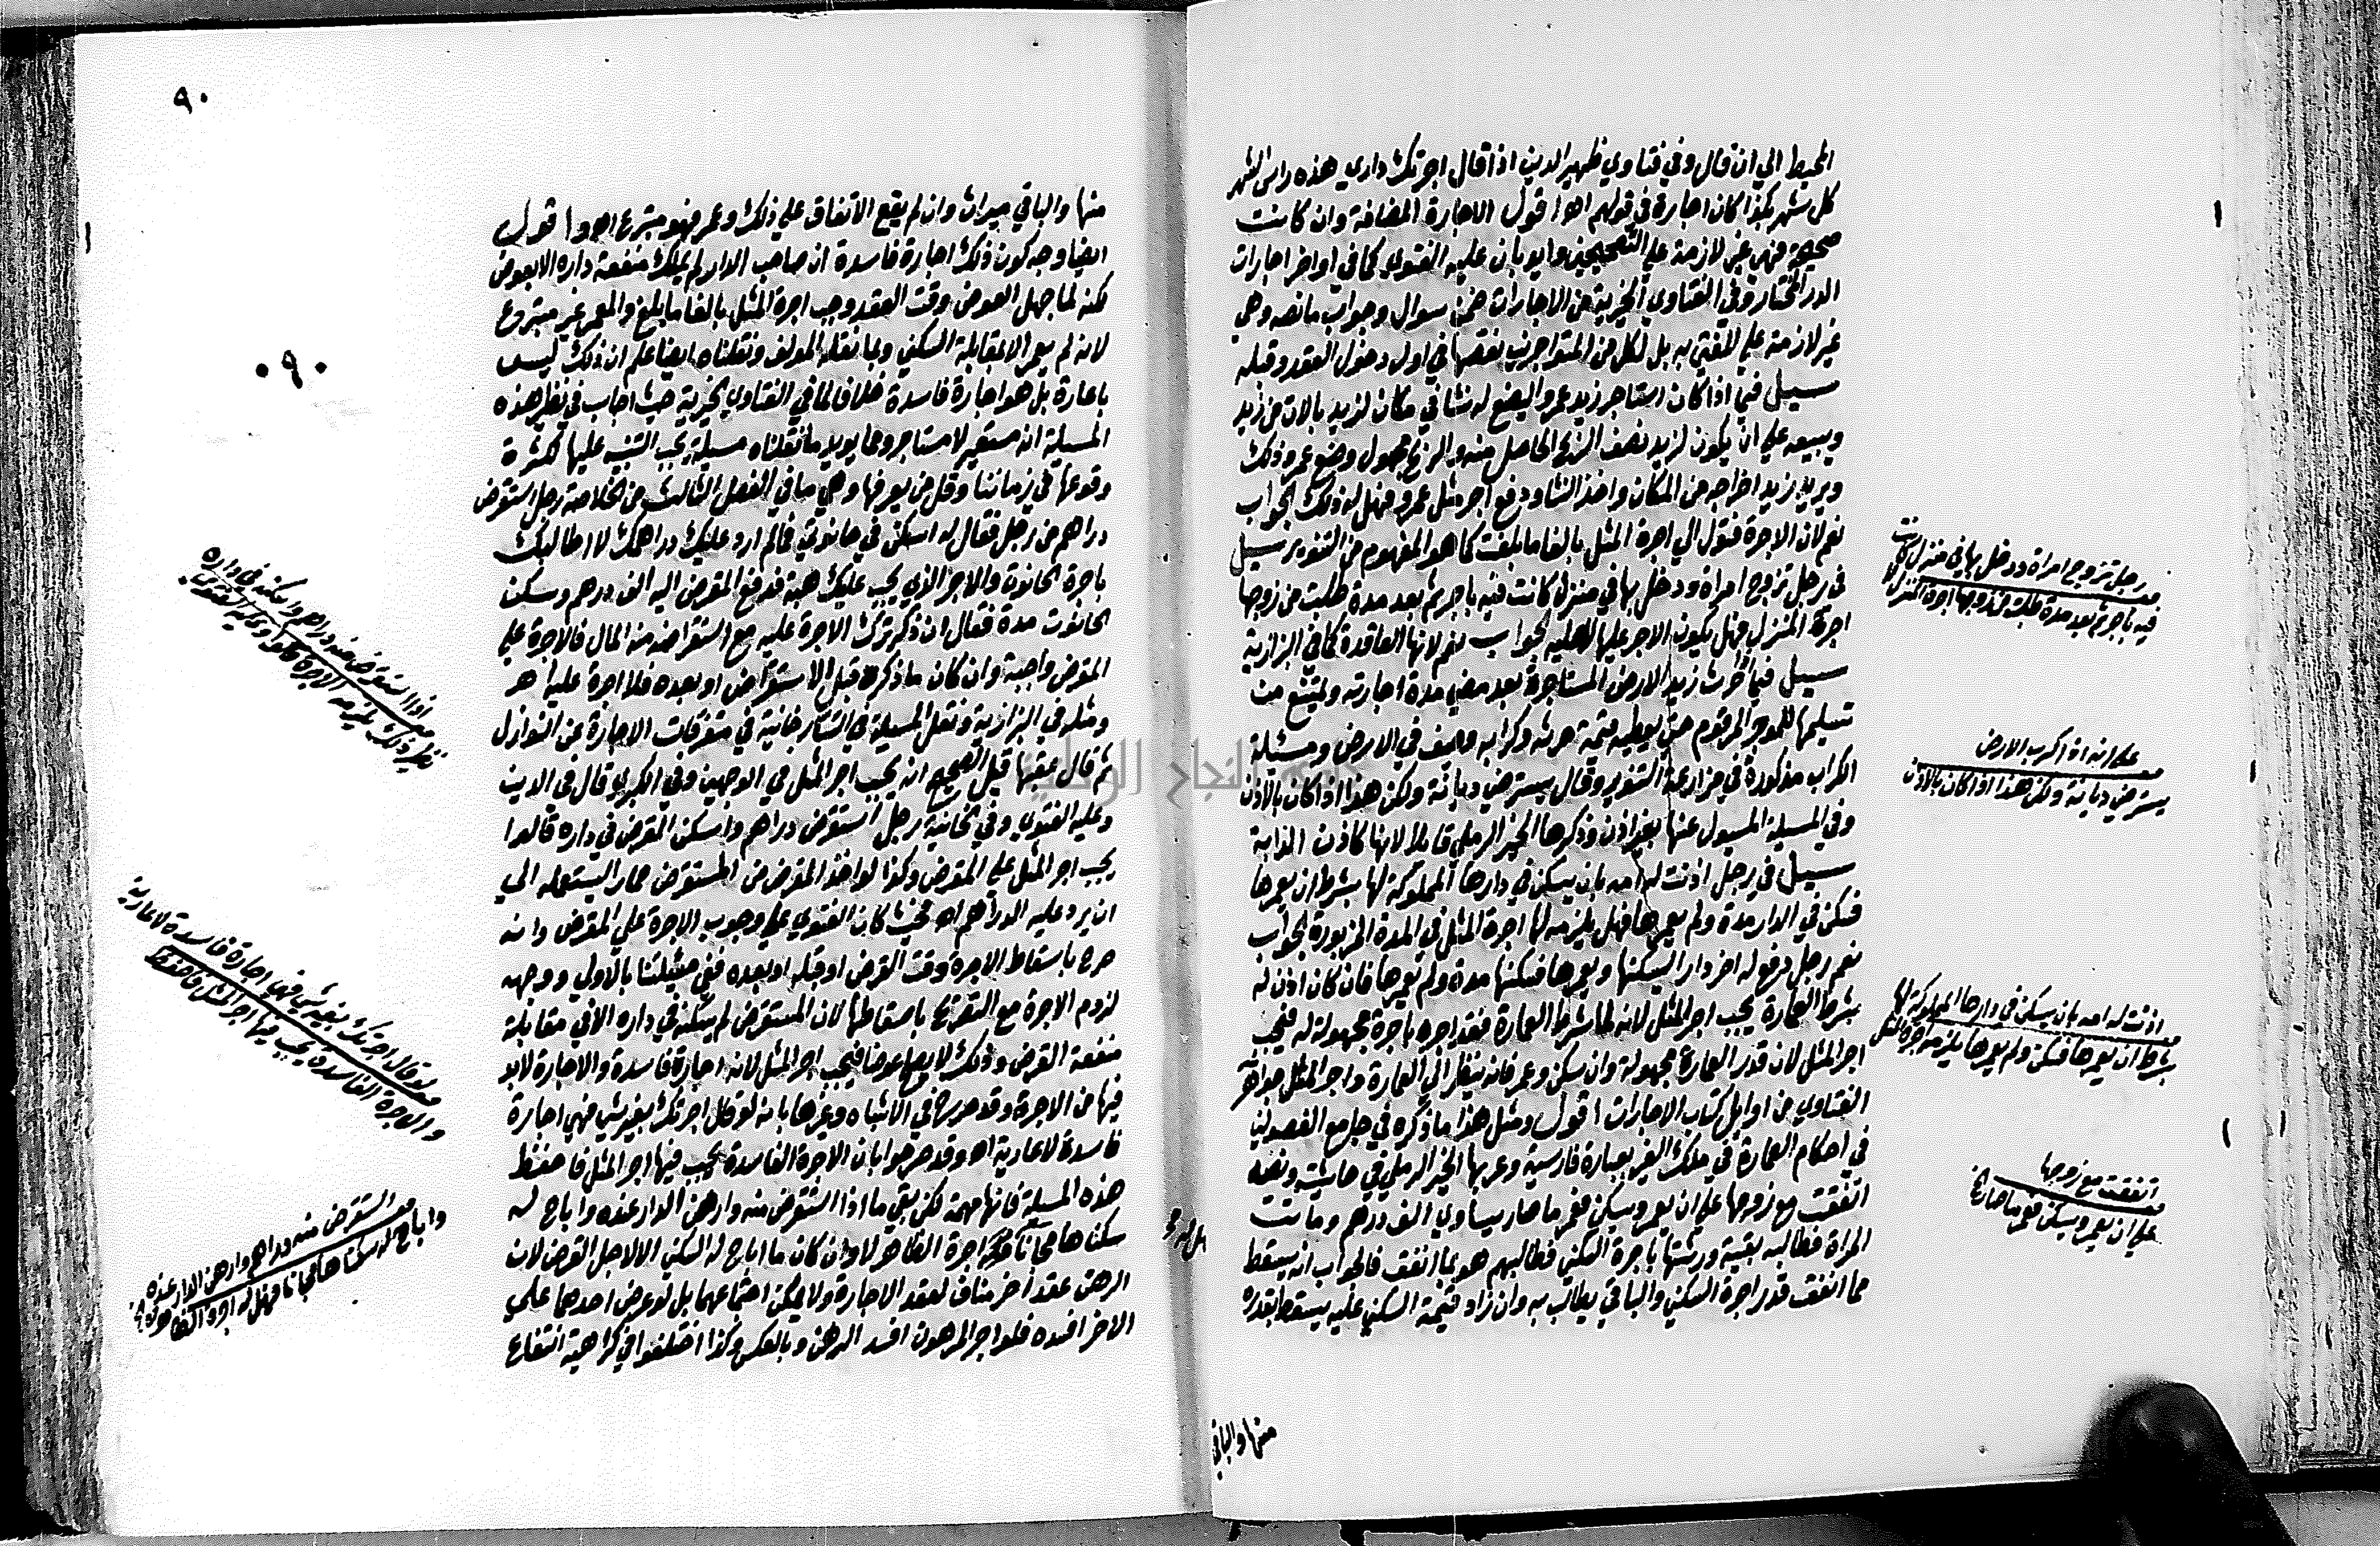 المحيط الي ان قال وفي فتاوي ظهير الدين اذا قال اجرتك داري هذه راس الشهر
كل شهر بكذا كان اجارة في قولهم اه اقول الاجارة المضافة وان كانت
صحيحة فهي غير لازمة علي احد التصحيحين وايد بان عليه الفتوي كما في اواخر اجارات
الدر المختار وفي الفتاوي الخيرية من الاجارات ضمن سوال وجواب ما نصه وهي
غير لازمة علي المفتي به بل لكل من المتواجرين نقضها في اول دخول العقد وقبله
سيل فيما اذا كان استاجر زيد عمرو اليصنع له نشا في مكان لزيد بالات من زيد
ويبيعه علي ان يكون لزيد نصف الربح الحاصل منه والربح مجهول وصنع عمرو ذلك
ويريد زيد اخراجه من المكان واخذ النشا ودفع اجر مثل عمرو فهل له ذلك الجواب
نعم لان الاجرة فتول الي اجرة المثل بالغا ما بلغت كما هو المفهوم من التنوير سيل
في رجل تزوج امراة ودخل بها في منزل كانت فيه باجر ثم بعد مدة طلبت من زوجها
اجرة المنزل فهل يكون الاجر عليها لا عليه الجواب نعم لانها العاقدة كما في البزازية
سيل فيما حرث زيد الارض المستاجرة بعد مضي مدة اجارته ويمتنع من
تسليمها للموجر المرقوم حتي يعطيه قيمة حرثه وكرابه وصف في الارض ومسئلة
الكراب مذكورة في مزارعة التنوير وقال يسترضي ديانة ولكن هذا اذا كان بالاذن
وفي المسيلة المسيول عنها بغير اذن وذكرها الخير الرملي قايلا لانها كاذن الدابة
سيل في رجل اذنت له امه بان يسكن في دارها المملوكة لها بشرط ان يعمرها
فسكن في الدار مدة ولم يعمرها فهل يلزمه لها اجرة المثل في المدة المزبورة الجواب
نعم رجل دفع له اخر دارا ليسكنها ويعمرها فسكنها مدة ولم يعمرها فان كان اذن له
بشرط العمارة يجب اجر المثل لانه لما شرط العمارة فقد اجره باجرة مجهولة له فيجب
اجر المثل لان قدر العمارة مجهولة وان سكن وعمر فانه ينظر الي العمارة واجر المثل جواهر
الفتاوي من اوايل كتاب الاجارات اقول ومثل هذا ما ذكره في جامع الفصولين
في احكام العمارة في ملك الغير بعبارة فارسية وعربها الخير الرملي في حاشيته ونصه
اتفقت مع زوجها علي ان يعمر ويسكن فعمر ما صار يساوي الف درهم وماتت
المراة فطالبه بقية ورثتها باجرة السكني فطالبهم هو بما انفق فالجواب انه يسقط
مما انفقت قدر اجرة السكني والباقي يطالب به وان زاد قيمة السكني عليه يسقط بقدره
منها والباقي
رجل تزوج امراة ودخل بها في منزل كانت
فيه باجر ثم بعد مدة طلبت من زوجها اجرة المنزل
علي انه اذا كرب الارض
يسترضي ديانة ولكن هذا اذا كان بالاذن
اذنت له امه بان يسكن في دارها المملوكة لها
بشرط ان يعمرها فسكن ولم يعمرها يلزمه اجرة المثل
اتفقت مع زوجها
علي ان يعمر ويسكن فعمر ما صار الخ
٩٠
٩٠
منها والباقي ميراث وان لم يقع الاتفاق علي ذلك وعمر فهو متبرع اه واقول
ايضا وجه كون ذلك اجارة فاسدة ان صاحب الدار لم يملك منفعة داره الا بعوض
لكنه لما جهل العوض وقت العقد وجب اجرة المثل بالغا ما بلغ والمعمر غير متبرع
لانه لم يعمر الا بمقابلة السكني وبما نقله المولف ونقلناه ايضا علم ان ذلك ليس
باعارة بل هو اجارة فاسدة خلافا لما في الفتاوي الخيرية حيث اجاب في نظير هذه
المسيلة انه مستعير لا مستاجر ومما يويد ما نقلناه مسيلة يجب التنبيه عليها لكثرة
وقوعها في زماننا وقل من يعرفها وهي ما في الفصل الثالث من الخلاصة رجل استقرض
دراهم من رجل فقال له اسكن في حانوتي فما لم ارد عليك دراهمك لا اطالبك
باجرة الحانوت والاجر الذي يجب عليك هبة فدفع المقرض اليه الف درهم وسكن
الحانوت مدة فقال ان ذكر ترك الاجرة عليه مع استقراضه منه المال فالاجرة علي
المقرض واجبة وان كان ما ذكره قبل الاستقراض او بعده فلا اجرة عليه اه
ومثله في البزازية ونقل المسيلة في التتارخانية في متفرقات الاجارة عن النوازل
ثم قال عقبها قيل الصحيح انه يجب اجر المثل في الوجهين وفي الكبري قال فخر الدين
وعليه الفتوي وفي الخانية رجل استقرض دراهم واسكن المقرض في داره قالوا
يجب اجر المثل علي المقرض وكذا لو اخذ المقرض من المستقرض حمارا ليستعمله الي
ان يرد عليه الدراهم اه فحيث كان الفتوي علي وجوب الاجرة علي المقرض وانه
صرح باسقاط الاجرة وقت القرض او قبله او بعده ففي مسيلتنا بالاولي ووجه
لزوم الاجرة مع التصريح باسقاطها لان المستقرض لم يسكنه في داره الا في مقابلة
منفعة القرض وذلك لا يصلح عوضا فيجب اجر المثل لانه اجارة فاسدة والاجارة لا بد
فيها من الاجرة وقد صرح في الاشباه وغيرها بانه لو قال اجرتك بغير شي فهي اجارة
فاسدة لا عارية اه وقد صرحوا بان الاجرة الفاسدة يجب فيها اجر المثل فاحفظ
هذه المسيلة فانها مهمة لكن بقي ما اذا استقرض منه وارهن الدار عنده واباح له
سكناها مجانا فهل له اجرة الظاهر لا وان كان ما اباح له السكني الا لاجل القرض لان
الرهن عقد اخر مناف لعقد الاجارة ولا يمكن اجتماعهما بل لو عرض احدهما علي
الاخر افسده فلو اجر المرهون افسد الرهن وبالعكس وكذا اختلفوا في كراهية انتفاع
اذا استقرض منه دراهم واسكنه في داره
نظير ذلك يلزمه الاجرة قالوا وعليه الفتوي
لو قال اجرتك بغير شي فهي اجارة فاسدة لا عارية
والاجرة الفاسدة يجب فيها اجر المثل فاحفظه
استقرض منه دراهم وارهن الدار عنده
واباح له سكناها مجانا فهل له اجرة الظاهر لا